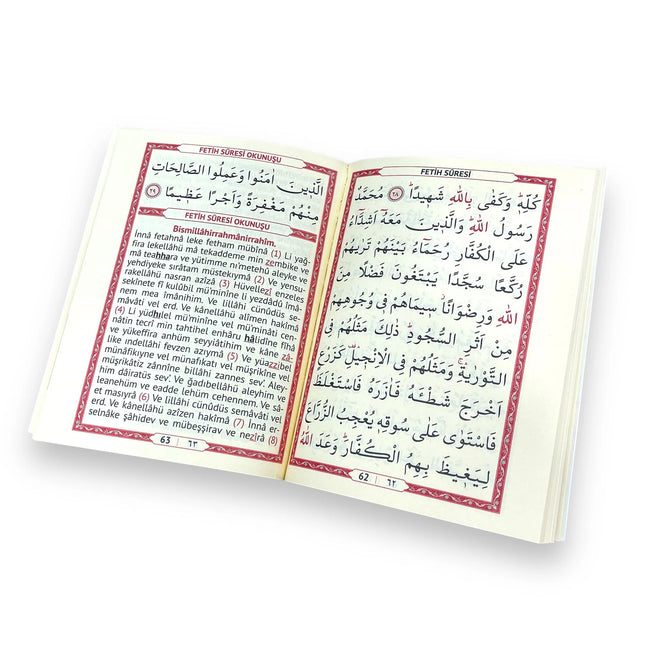 FETİH SÛRESİ
كُلِّهِ وَكَفٰى بِاللّٰهِ شَهٖيدًا ﴿٢٨﴾ مُحَمَّدٌ
رَسُولُ اللّٰهِ وَالَّذٖينَ مَعَهُٓ اَشِدَّٓاءُ
عَلَى الْكُفَّارِ رُحَمَٓاءُ بَيْنَهُمْ تَرٰيهُمْ
رُكَّعًا سُجَّدًا يَبْتَغُونَ فَضْلًا مِنَ
اللّٰهِ وَرِضْوَانًا سٖيمَاهُمْ فٖى وُجُوهِهِمْ
مِنْ اَثَرِ السُّجُودِ ذٰلِكَ مَثَلُهُمْ فِى
التَّوْرٰيةِ وَمَثَلُهُمْ فِى الْاِنْجٖيلِ كَزَرْعٍ
اَخْرَجَ شَطْـَٔهُ فَاٰزَرَهُ فَاسْتَغْلَظَ
فَاسْتَوٰى عَلٰى سُوقِهٖ يُعْجِبُ الزُّرَّاعَ
لِيَغٖيظَ بِهِمُ الْكُفَّارَ وَعَدَ اللّٰهُ
62 | ٦٢
FETİH SÛRESİ OKUNUŞU
الَّذٖينَ اٰمَنُوا وَعَمِلُوا الصَّالِحَاتِ
مِنْهُمْ مَغْفِرَةً وَاَجْرًا عَظٖيمًا ﴿٢٩﴾
FETİH SÛRESİ OKUNUŞU
Bismillâhirrahmânirrahîm.
İnnâ fetahnâ leke fetham mübînâ (1) Li yağ-
fira lekellâhü mâ tekaddeme min zembike ve
mâ teahhara ve yütimme ni'metehû aleyke ve
yehdiyeke sırâtam müstekıymâ (2) Ve yensu-
rakellâhü nasran azîzâ (3) Hüvellezî enzeles
sekînete fî kulûbil mü'minîne li yezdâdû îmâ-
nem mea îmânihim. Ve lillâhi cünûdüs se-
mâvâti vel erd. Ve kânellâhü alîmen hakîmâ
(4) Li yüdhılel mü'minîne vel mü'minâti cen-
nâtin tecrî min tahtihel enhâru hâlidîne fîhâ
ve yükeffira anhüm seyyiâtihim ve kâne zâ-
like ındellâhi fevzen azıymâ (5) Ve yüazzibel
münâfikıyne vel münâfikati vel müşrikîne vel
müşrikâtiz zânnîne billâhi zannes sev'. Aley-
him dâiratüs sev'. Ve ğadıbellâhü aleyhim ve
leanehüm ve eadde lehüm cehennem. Ve sâ-
et masıyrâ (6) Ve lillâhi cünûdüs semâvâti vel
erd. Ve kânellâhü azîzen hakîmâ (7) İnnâ er-
selnâke şâhidev ve mübeşşirav ve nezîrâ (8)
63 | ٦٣